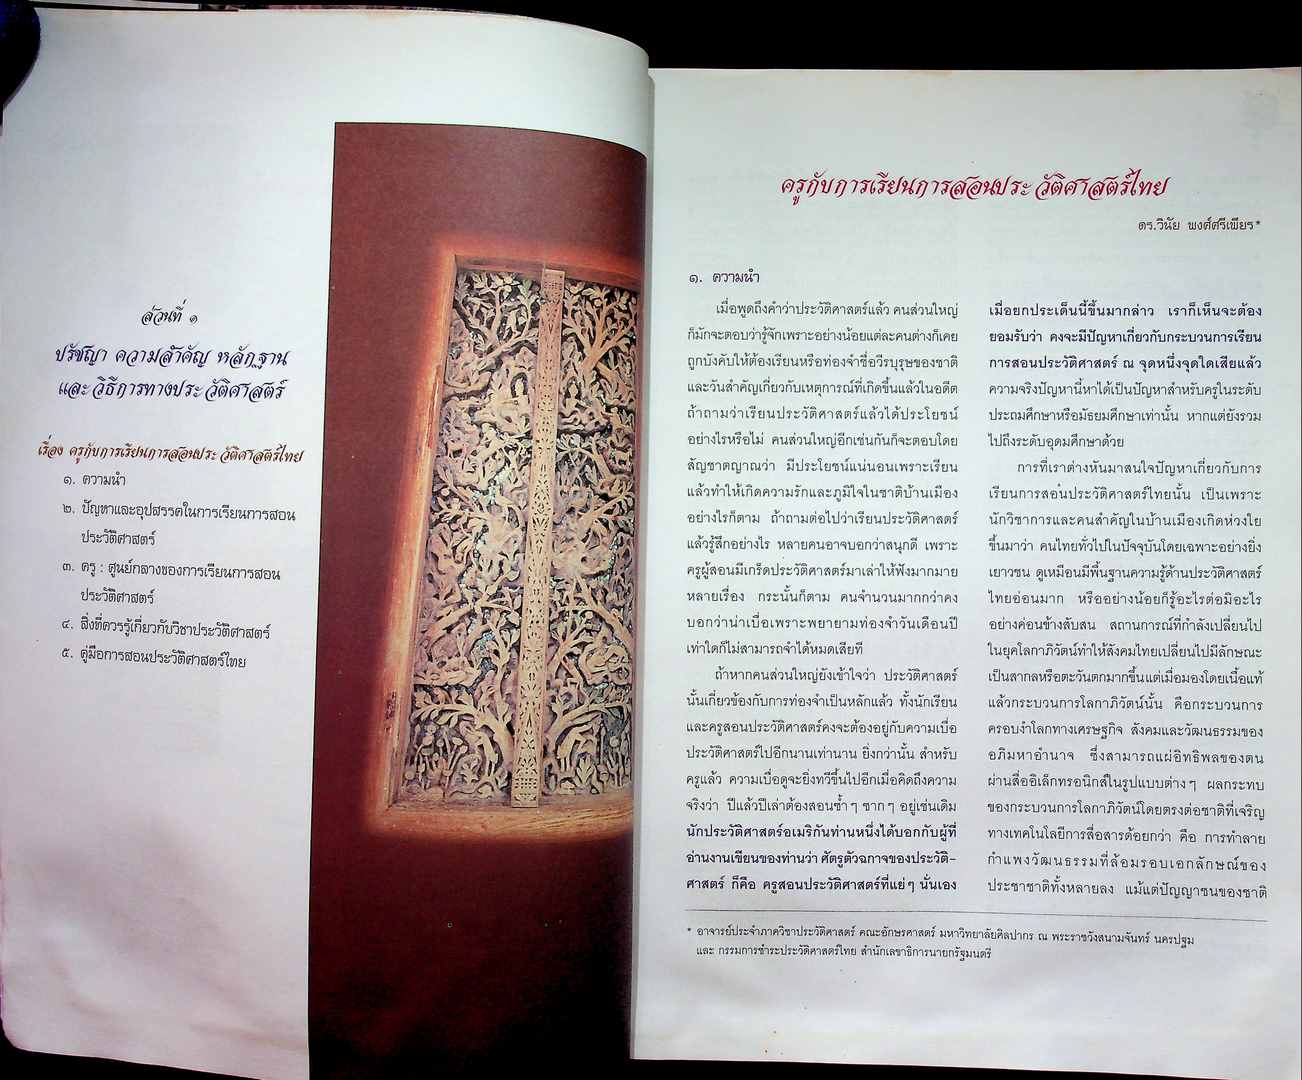 ส่วนที่ ๑
ปรัชญา ความสำคัญ หลักฐาน
และ วิธีการทางประวัติศาสตร์
เรื่อง ครูกับการเรียนการสอนประวัติศาสตร์ไทย
๑. ความนำ
๒. ปัญหาและอุปสรรคในการเรียนการสอน
ประวัติศาสตร์
๓. ครู : ศูนย์กลางของการเรียนการสอน
ประวัติศาสตร์
๔. สิ่งที่ควรรู้เกี่ยวกับวิชาประวัติศาสตร์
๕. คู่มือการสอนประวัติศาสตร์ไทย
ครูกับการเรียนการสอนประวัติศาสตร์ไทย
ดร.วินัย พงศ์ศรีเพียร*
๑. ความนำ
เมื่อพูดถึงคำว่าประวัติศาสตร์แล้ว คนส่วนใหญ่
ก็มักจะตอบว่ารู้จักเพราะอย่างน้อยแต่ละคนต่างก็เคย
ถูกบังคับให้ต้องเรียนหรือท่องจำชื่อวีรบุรุษของชาติ
และวันสำคัญเกี่ยวกับเหตุการณ์ที่เกิดขึ้นแล้วในอดีต
ถ้าถามว่าเรียนประวัติศาสตร์แล้วได้ประโยชน์
อย่างไรหรือไม่ คนส่วนใหญ่อีกเช่นกันก็จะตอบโดย
สัญชาตญาณว่า มีประโยชน์แน่นอนเพราะเรียน
แล้วทำให้เกิดความรักและภูมิใจในชาติบ้านเมือง
อย่างไรก็ตาม ถ้าถามต่อไปว่าเรียนประวัติศาสตร์
แล้วรู้สึกอย่างไร หลายคนอาจบอกว่าสนุกดี เพราะ
ครูผู้สอนมีเกร็ดประวัติศาสตร์มาเล่าให้ฟังมากมาย
หลายเรื่อง กระนั้นก็ตาม คนจำนวนมากกว่าคง
บอกว่าน่าเบื่อเพราะพยายามท่องจำวันเดือนปี
เท่าใดก็ไม่สามารถจำได้หมดเสียที
ถ้าหากคนส่วนใหญ่ยังเข้าใจว่า ประวัติศาสตร์
นั้นเกี่ยวข้องกับการท่องจำเป็นหลักแล้ว ทั้งนักเรียน
และครูสอนประวัติศาสตร์คงจะต้องอยู่กับความเบื่อ
ประวัติศาสตร์ไปอีกนานเท่านาน ยิ่งกว่านั้น สำหรับ
ครูแล้ว ความเบื่อดูจะยิ่งทวีขึ้นไปอีกเมื่อคิดถึงความ
จริงว่า ปีแล้วปีเล่าต้องสอนซ้ำๆ ซากๆ อยู่เช่นเดิม
นักประวัติศาสตร์อเมริกันท่านหนึ่งได้บอกกับผู้ที่
อ่านงานเขียนของท่านว่า ศัตรูตัวฉกาจของประวัติ-
ศาสตร์ ก็คือ ครูสอนประวัติศาสตร์ที่แย่ๆ นั่นเอง
เมื่อยกประเด็นนี้ขึ้นมากล่าว เราก็เห็นจะต้อง
ยอมรับว่า คงจะมีปัญหาเกี่ยวกับกระบวนการเรียน
การสอนประวัติศาสตร์ ณ จุดหนึ่งจุดใดเสียแล้ว
ความจริงปัญหานี้หาได้เป็นปัญหาสำหรับครูในระดับ
ประถมศึกษาหรือมัธยมศึกษาเท่านั้น หากแต่ยังรวม
ไปถึงระดับอุดมศึกษาด้วย
การที่เราต่างหันมาสนใจปัญหาเกี่ยวกับการ
เรียนการสอนประวัติศาสตร์ไทยนั้น เป็นเพราะ
นักวิชาการและคนสำคัญในบ้านเมืองเกิดห่วงใย
ขึ้นมาว่า คนไทยทั่วไปในปัจจุบันโดยเฉพาะอย่างยิ่ง
เยาวชน ดูเหมือนมีพื้นฐานความรู้ด้านประวัติศาสตร์
ไทยอ่อนมาก หรืออย่างน้อยก็รู้อะไรต่อมิอะไร
อย่างค่อนข้างสับสน สถานการณ์ที่กำลังเปลี่ยนไป
ในยุคโลกาภิวัตน์ทำให้สังคมไทยเปลี่ยนไปมีลักษณะ
เป็นสากลหรือตะวันตกมากขึ้นแต่เมื่อมองโดยเนื้อแท้
แล้วกระบวนการโลกาภิวัตน์นั้น คือกระบวนการ
ครอบงำโลกทางเศรษฐกิจ สังคมและวัฒนธรรมของ
อภิมหาอำนาจ ซึ่งสามารถแผ่อิทธิพลของตน
ผ่านสื่ออิเล็กทรอนิกส์ในรูปแบบต่างๆ ผลกระทบ
ของกระบวนการโลกาภิวัตน์โดยตรงต่อชาติที่เจริญ
ทางเทคโนโลยีการสื่อสารด้อยกว่า คือ การทำลาย
กำแพงวัฒนธรรมที่ล้อมรอบเอกลักษณ์ของ
ประชาชาติทั้งหลายลง แม้แต่ปัญญาชนของชาติ
* อาจารย์ประจำภาควิชาประวัติศาสตร์ คณะอักษรศาสตร์ มหาวิทยาลัยศิลปากร ณ พระราชวังสนามจันทร์ นครปฐม
และ กรรมการชำระประวัติศาสตร์ไทย สำนักเลขาธิการนายกรัฐมนตรี